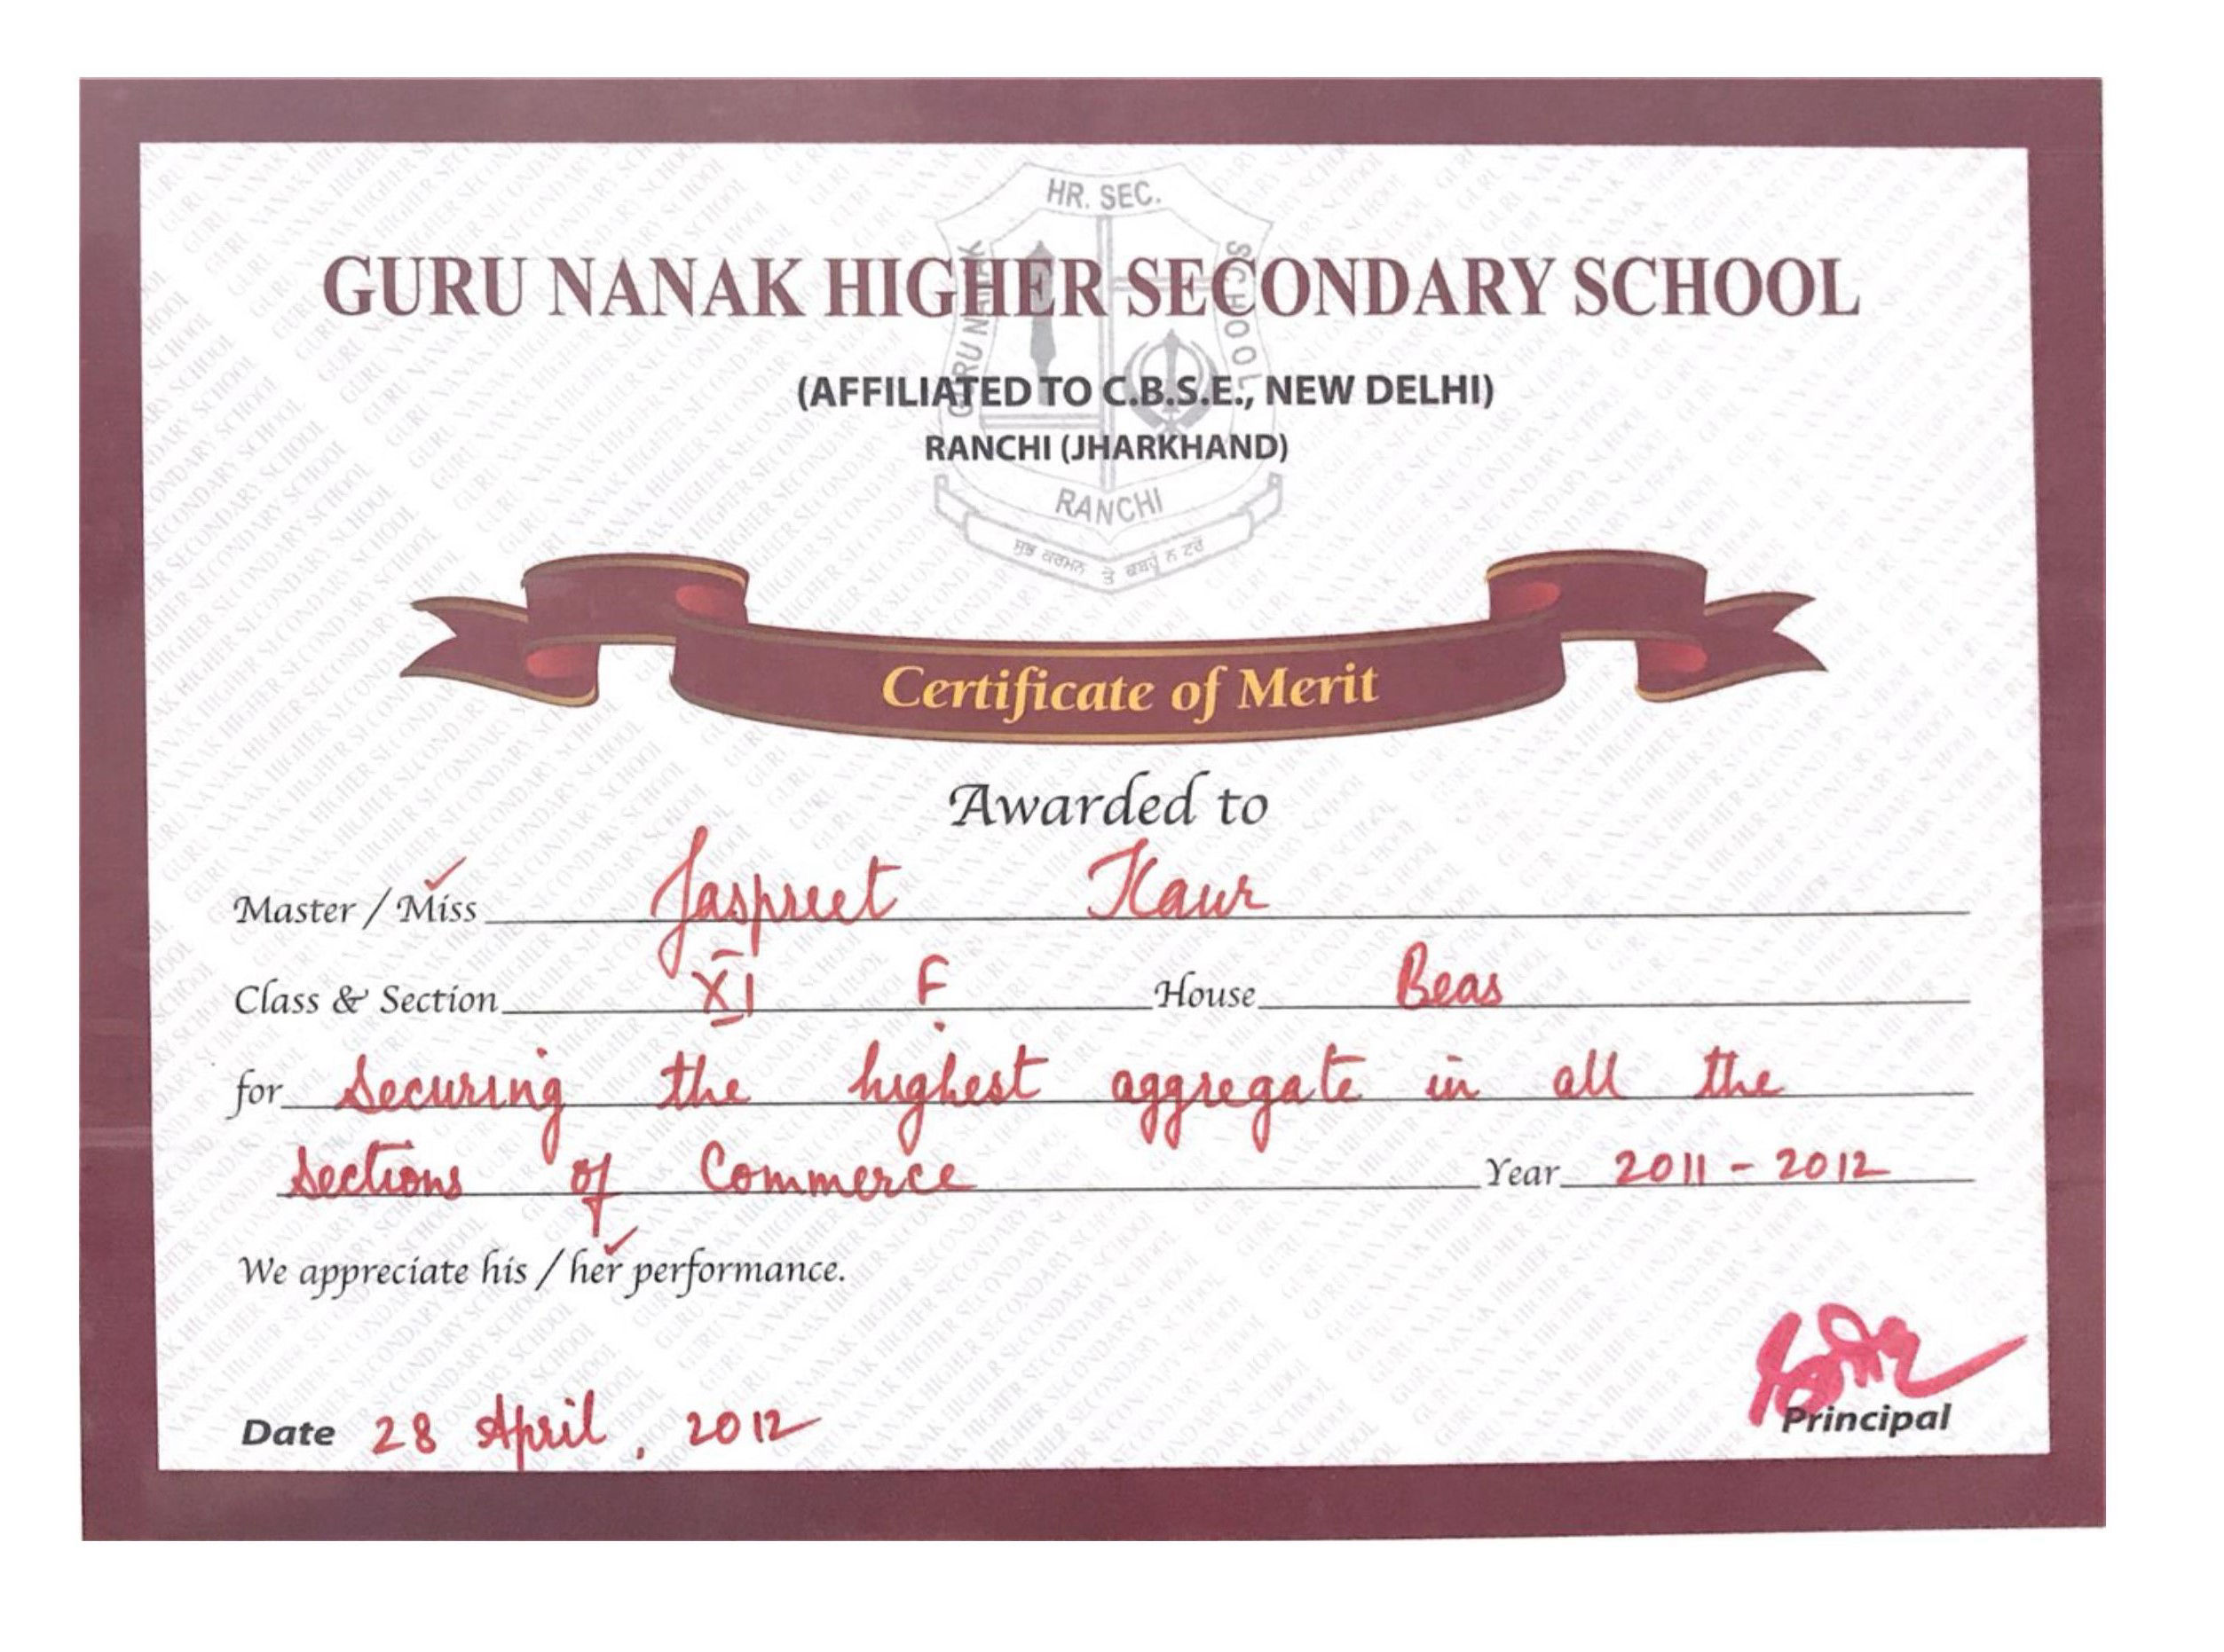 HR. SEC.
GURU NANAK
SCHOOL
GURU NANAK HIGHER SECONDARY SCHOOL
(AFFILIATED TO C.B.S.E., NEW DELHI)
RANCHI (JHARKHAND)
RANCHI
ਸੁਭ ਕਰਮਨ ਤੇ ਕਬਹੂੰ ਨ ਟਰੋਂ
Certificate of Merit
Awarded to
Master / Miss Jaspreet Kaur
Class & Section XI F House Beas
for securing the highest aggregate in all the
sections of Commerce Year 2011 - 2012
We appreciate his / her performance.
Date 28 April, 2012
Principal